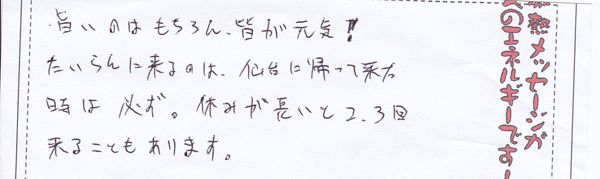 旨いのはもちろん、皆が元気!
たいらんに来るのは、仙台に帰って来た
時は必ず。休みが長いと2.3回
来ることもあります。
熱メッセージが
のエネルギーです!